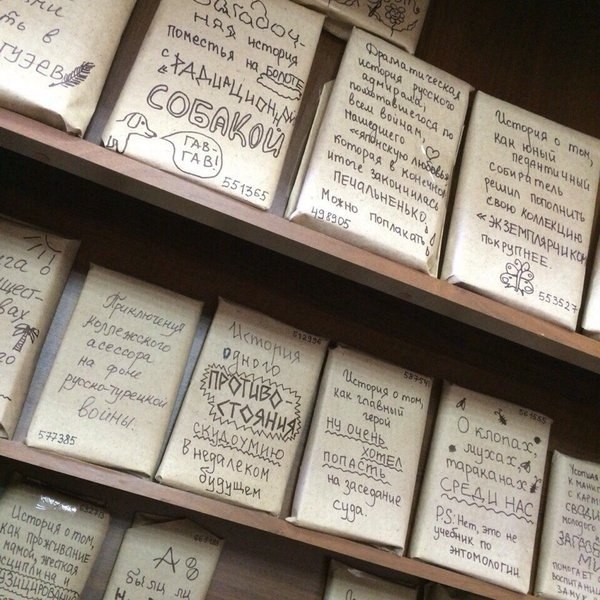 ть в
Загадоч-
ная история
поместья на болоте
с «РАДИАЦИОННОЙ»
СОБАКОЙ
ГАВ-
ГАВ!
551365
Драматическая
история русского
адмирала,
помотавшегося по
всем войнам,
нашедшего
«японскую любовь»
которая в конечном
итоге закончилась
ПЕЧАЛЬНЕНЬКО.
Можно поплакать
498905
История о том,
как юный
педантичный
собиратель
решил пополнить
свою коллекцию
«ЭКЗЕМПЛЯРЧИКОМ
покрупнее.
553527
Приключения
коллежского
асессора
на фоне
русско-турецкой
войны.
577385
512996
История
одного
ПРОТИВО-
СТОЯНИЯ
СКУДОУМИЮ
в недалеком
будущем
587541
История о том,
как главный
герой
ну очень
хотел
попасть
на заседание
суда.
561555
О клопах,
мухах,
тараканах
СРЕДИ НАС
P.S: Нет, это не
учебник по
энтомологии
История о том,
как проживание
с мамой, жёсткая
дисциплина и
А
были ли